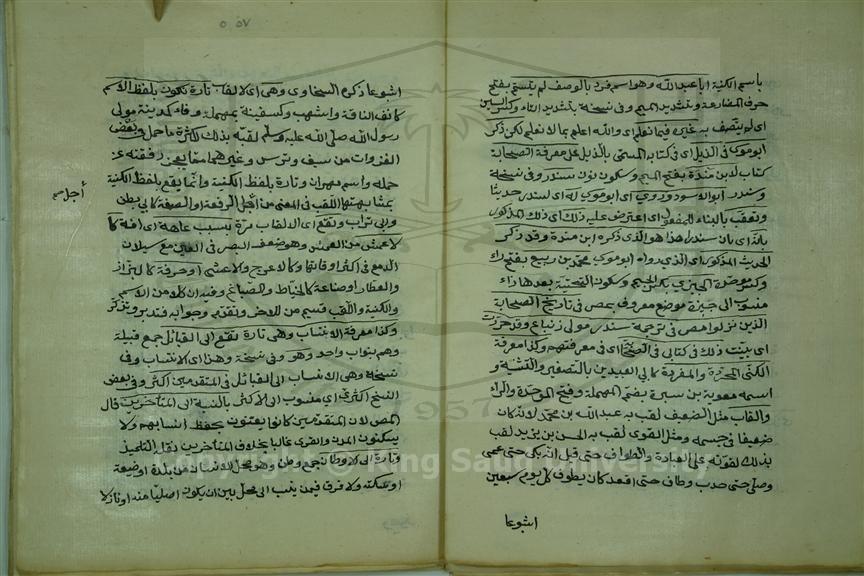 باسم الكنية ابا عبد الله وهو اسم فرد بالوصف لم يتسم بفتح
حرف المضارعة وتشديد الميم وفي نسخة بتشديد التاء وكسر السين
اي لم يتصف به غيره فيما نعلم اي والله اعلم بما لا نعلم لكن ذكر
ابو موسى في الذيل اي في كتابه المسمى بالذيل على معرفة الصحابة
كتاب لابن مندة بفتح الميم وسكون نون سندر وفي نسخة
وسندر ابو الاسود وروى اي ابو موسى له اي لسندر حديثا
وتعقب بالبناء للمفعول اي اعترض عليه ذلك اي ذلك المذكور
بالذي بان سندر هذا هو الذي ذكره ابن مندة وقد ذكر
الحديث المذكور اي الذي رواه ابو موسى محمد بن ربيع بفتح راء
وكسر موحدة الجيزي بكسر الجيم وسكون التحتية بعدها زاء
منسوب الى جيزة موضع معروف بمصر في تاريخ الصحابة
الذين نزلوا مصر في ترجمة سندر مولى زنباع وقد حررت
اي بينت ذلك في كتابي في الصحابة اي في معرفتهم وكذا معرفة
الكنى المجردة والمفردة كابي العبيدين بالتصغير والتثنية و
اسمه معوية بن سبرة بفتح المهملة وفتح الموحدة والراء
والقاب مثل الضعيف لقب به عبد الله بن محمد لانه كان
ضعيفا في جسمه ومثل القوي لقب به الحسن بن يزيد لقب
بذلك لقوته على العبادة والطواف حتى قيل انه بكى حتى عمي
وصلى حتى حدب وطاف حتى اقعد كان يطوف كل يوم سبعين
اسبوعا
٥٧
اسبوعا ذكره السخاوي وهي اي الالقاب تارة تكون بلفظ الاسم
كانف الناقة واشهب وكسفينة بمهملة وفاء كمدينة مولى
رسول الله صلى الله عليه وسلم لقبه بذلك لكثرة ما حمل في بعض
الغزوات من سيف وترس وغيرهما مما يعجز رفقته عن
حمله واسمه مهران وتارة بلفظ الكنية وانما يقع بلفظ الكنية
بمشابهتها اللقب في المعنى من اجل الرفعة او الصفة كابي بطن
وابي تراب وتقع اي الالقاب مرة بسبب عاهة اي افة كا
لاعمش من العمش وهو ضعف البصر في العين مع سيلان
الدمع في اكثر اوقاتها وكالاعرج والاعشى او حرفة كالبزاز
والعطار او صناعة كالخياط والصباغ وفيه ان كلا من الاسم
والكنية واللقب قسيم من للاخر وتقدم وجوابه فتدبر وتذكر
وكذا معرفة الانساب وهي تارة تقع الى القبائل جمع قبيلة
وهم بنو اب واحد وهو وفي نسخة وهذا اي الانتساب وفي
نسخة وهي الانساب الى القبائل في المتقدمين اكثر وفي بعض
النسخ اكثري اي منسوب الى الاكثر بالنسبة الى المتأخرين قال
المص لان المتقدمين كانوا يعتنون بحفظ انسابهم ولا
يسكنون المدن والقرى غالبا بخلاف المتأخرين نقله التلميذ
وتارة الى الاوطان جمع وطن وهو محل الانسان من بلدة او ضيعة
او سكة ولا فرق فيمن ينسب الى محل بين ان يكون اصليا منه او نازلا
أجل صح
1957
Copyright © King Saud University